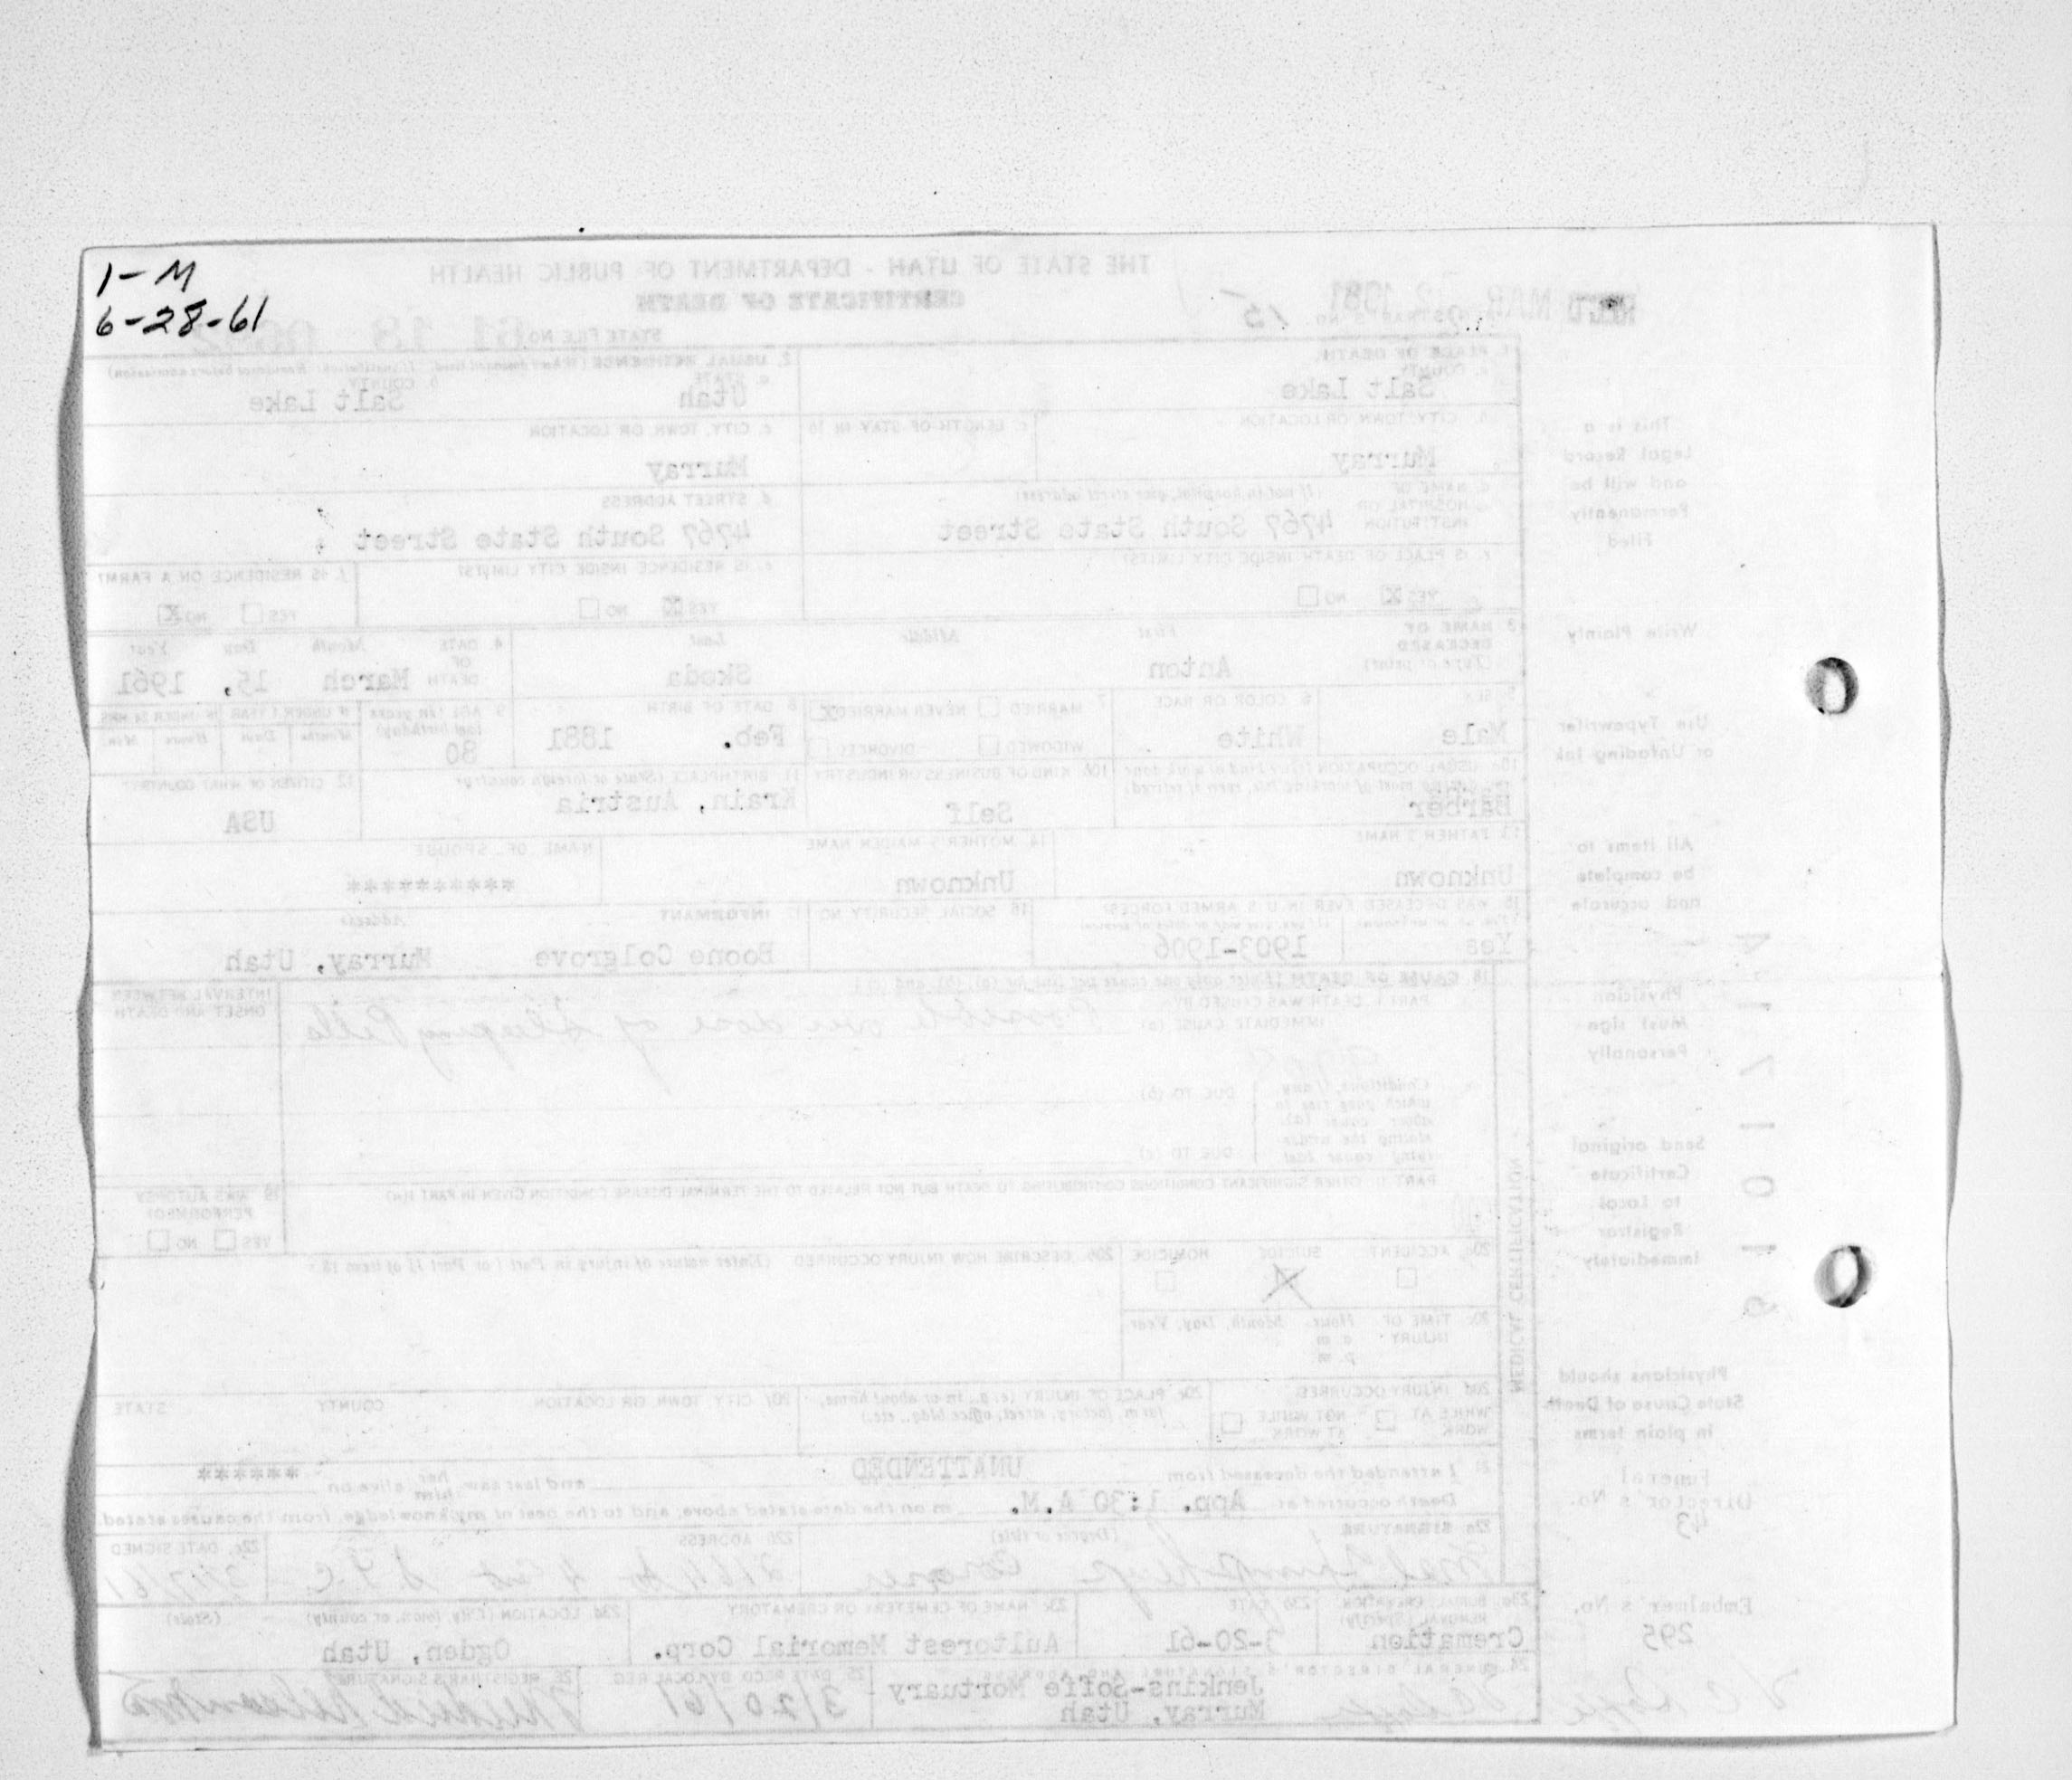 1-M
6-28-61
THE STATE OF UTAH - DEPARTMENT OF PUBLIC HEALTH
CERTIFICATE OF DEATH
REC'D MAR 1961
REGISTRAR'S NO. 15
STATE FILE NO. 61 18
This is a
Legal Record
and will be
Permanently
Filed
Write Plainly
Use Typewriter
or Unfading Ink
All items to
be complete
and accurate
Physician
Must sign
Personally
Send original
Certificate
to Local
Registrar
Immediately
Physicians should
State Cause of Death
in plain terms
Funeral
Director's No.
43
Embalmer's No.
295
1. PLACE OF DEATH
a. COUNTY
Salt Lake
2. USUAL RESIDENCE (Where deceased lived. If institution: Residence before admission)
a. STATE
Utah
b. COUNTY
Salt Lake
b. CITY, TOWN, OR LOCATION
Murray
c. LENGTH OF STAY IN 1b
c. CITY, TOWN, OR LOCATION
Murray
d. NAME OF HOSPITAL OR INSTITUTION (If not in hospital, give street address)
4767 South State Street
d. STREET ADDRESS
4767 South State Street
e. IS PLACE OF DEATH INSIDE CITY LIMITS?
YES X NO
e. IS RESIDENCE INSIDE CITY LIMITS?
YES X NO
f. IS RESIDENCE ON A FARM?
YES NO X
3. NAME OF DECEASED (Type or print)
First Middle Last
Anton Skoda
4. DATE OF DEATH
Month Day Year
March 15, 1961
5. SEX
Male
6. COLOR OR RACE
White
7. MARRIED NEVER MARRIED X
WIDOWED DIVORCED
8. DATE OF BIRTH
Feb. 1881
9. AGE (In years last birthday)
80
IF UNDER 1 YEAR
Months Days
IF UNDER 24 HRS.
Hours Min.
10a. USUAL OCCUPATION (Give kind of work done during most of working life, even if retired)
Barber
10b. KIND OF BUSINESS OR INDUSTRY
Self
11. BIRTHPLACE (State or foreign country)
Krain, Austria
12. CITIZEN OF WHAT COUNTRY?
USA
13. FATHER'S NAME
Unknown
14. MOTHER'S MAIDEN NAME
Unknown
NAME OF SPOUSE
**********
15. WAS DECEASED EVER IN U.S. ARMED FORCES?
Yes 1903-1906
16. SOCIAL SECURITY NO.
17. INFORMANT Address
Boone Colgrove Murray, Utah
18. CAUSE OF DEATH (Enter only one cause per line for (a), (b), and (c))
PART I. DEATH WAS CAUSED BY:
IMMEDIATE CAUSE (a) Possible over dose of Sleeping Pills
INTERVAL BETWEEN
ONSET AND DEATH
Conditions, if any,
which gave rise to
above cause (a),
stating the under-
lying cause last
DUE TO (b)
DUE TO (c)
PART II. OTHER SIGNIFICANT CONDITIONS CONTRIBUTING TO DEATH BUT NOT RELATED TO THE TERMINAL DISEASE CONDITION GIVEN IN PART I(a)
19. WAS AUTOPSY
PERFORMED?
YES NO
MEDICAL CERTIFICATION
20a. ACCIDENT SUICIDE X HOMICIDE
20b. DESCRIBE HOW INJURY OCCURRED (Enter nature of injury in Part I or Part II of item 18)
20c. TIME OF INJURY
Hour Month, Day, Year
a.m.
p.m.
20d. INJURY OCCURRED
WHILE AT WORK NOT WHILE AT WORK
20e. PLACE OF INJURY (e.g., in or about home, farm, factory, street, office bldg., etc.)
20f. CITY, TOWN, OR LOCATION COUNTY STATE
21. I attended the deceased from UNATTENDED and last saw her him alive on ******
Death occurred at App. 1:30 A.M. m on the date stated above, and to the best of my knowledge, from the causes stated.
22a. SIGNATURE (Degree or title)
Coroner
22b. ADDRESS
22c. DATE SIGNED
3/17/61
23a. BURIAL, CREMATION, REMOVAL (Specify)
Cremation
23b. DATE
3-20-61
23c. NAME OF CEMETERY OR CREMATORY
Aultorest Memorial Corp.
23d. LOCATION (City, town, or county) (State)
Ogden, Utah
24. FUNERAL DIRECTOR'S SIGNATURE AND ADDRESS
Jenkins-Soffe Mortuary
Murray, Utah
25. DATE REC'D BY LOCAL REG.
3/20/61
26. REGISTRAR'S SIGNATURE